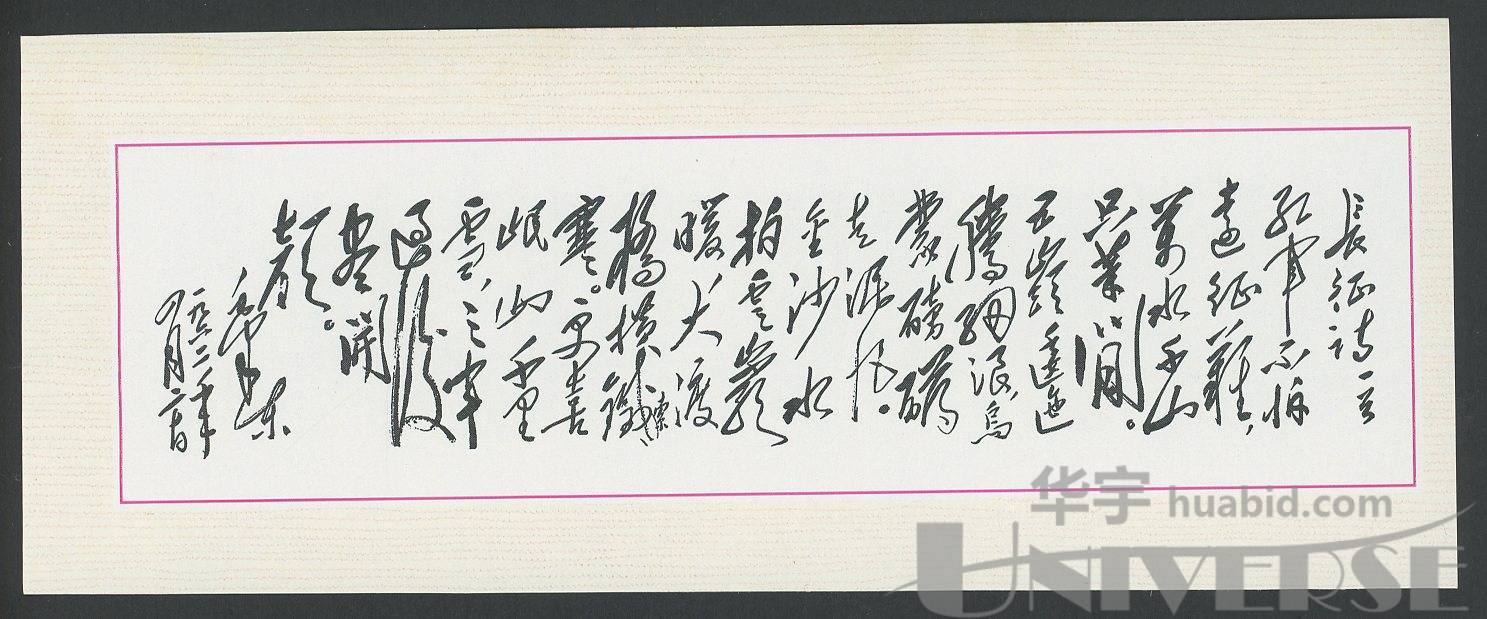 長征詩一首
紅軍不怕
遠征難,
萬水千山
只等閒。
五嶺逶迤
騰細浪,烏
蒙磅礴
走泥丸。
金沙水
拍雲崖
暖大渡
橋橫鐵索
寒。更喜
岷山千里
雪,三軍
過後
盡開
顏。
毛澤東
一九六二年
四月二十日
华宇 huabid.com
UNIVERSE